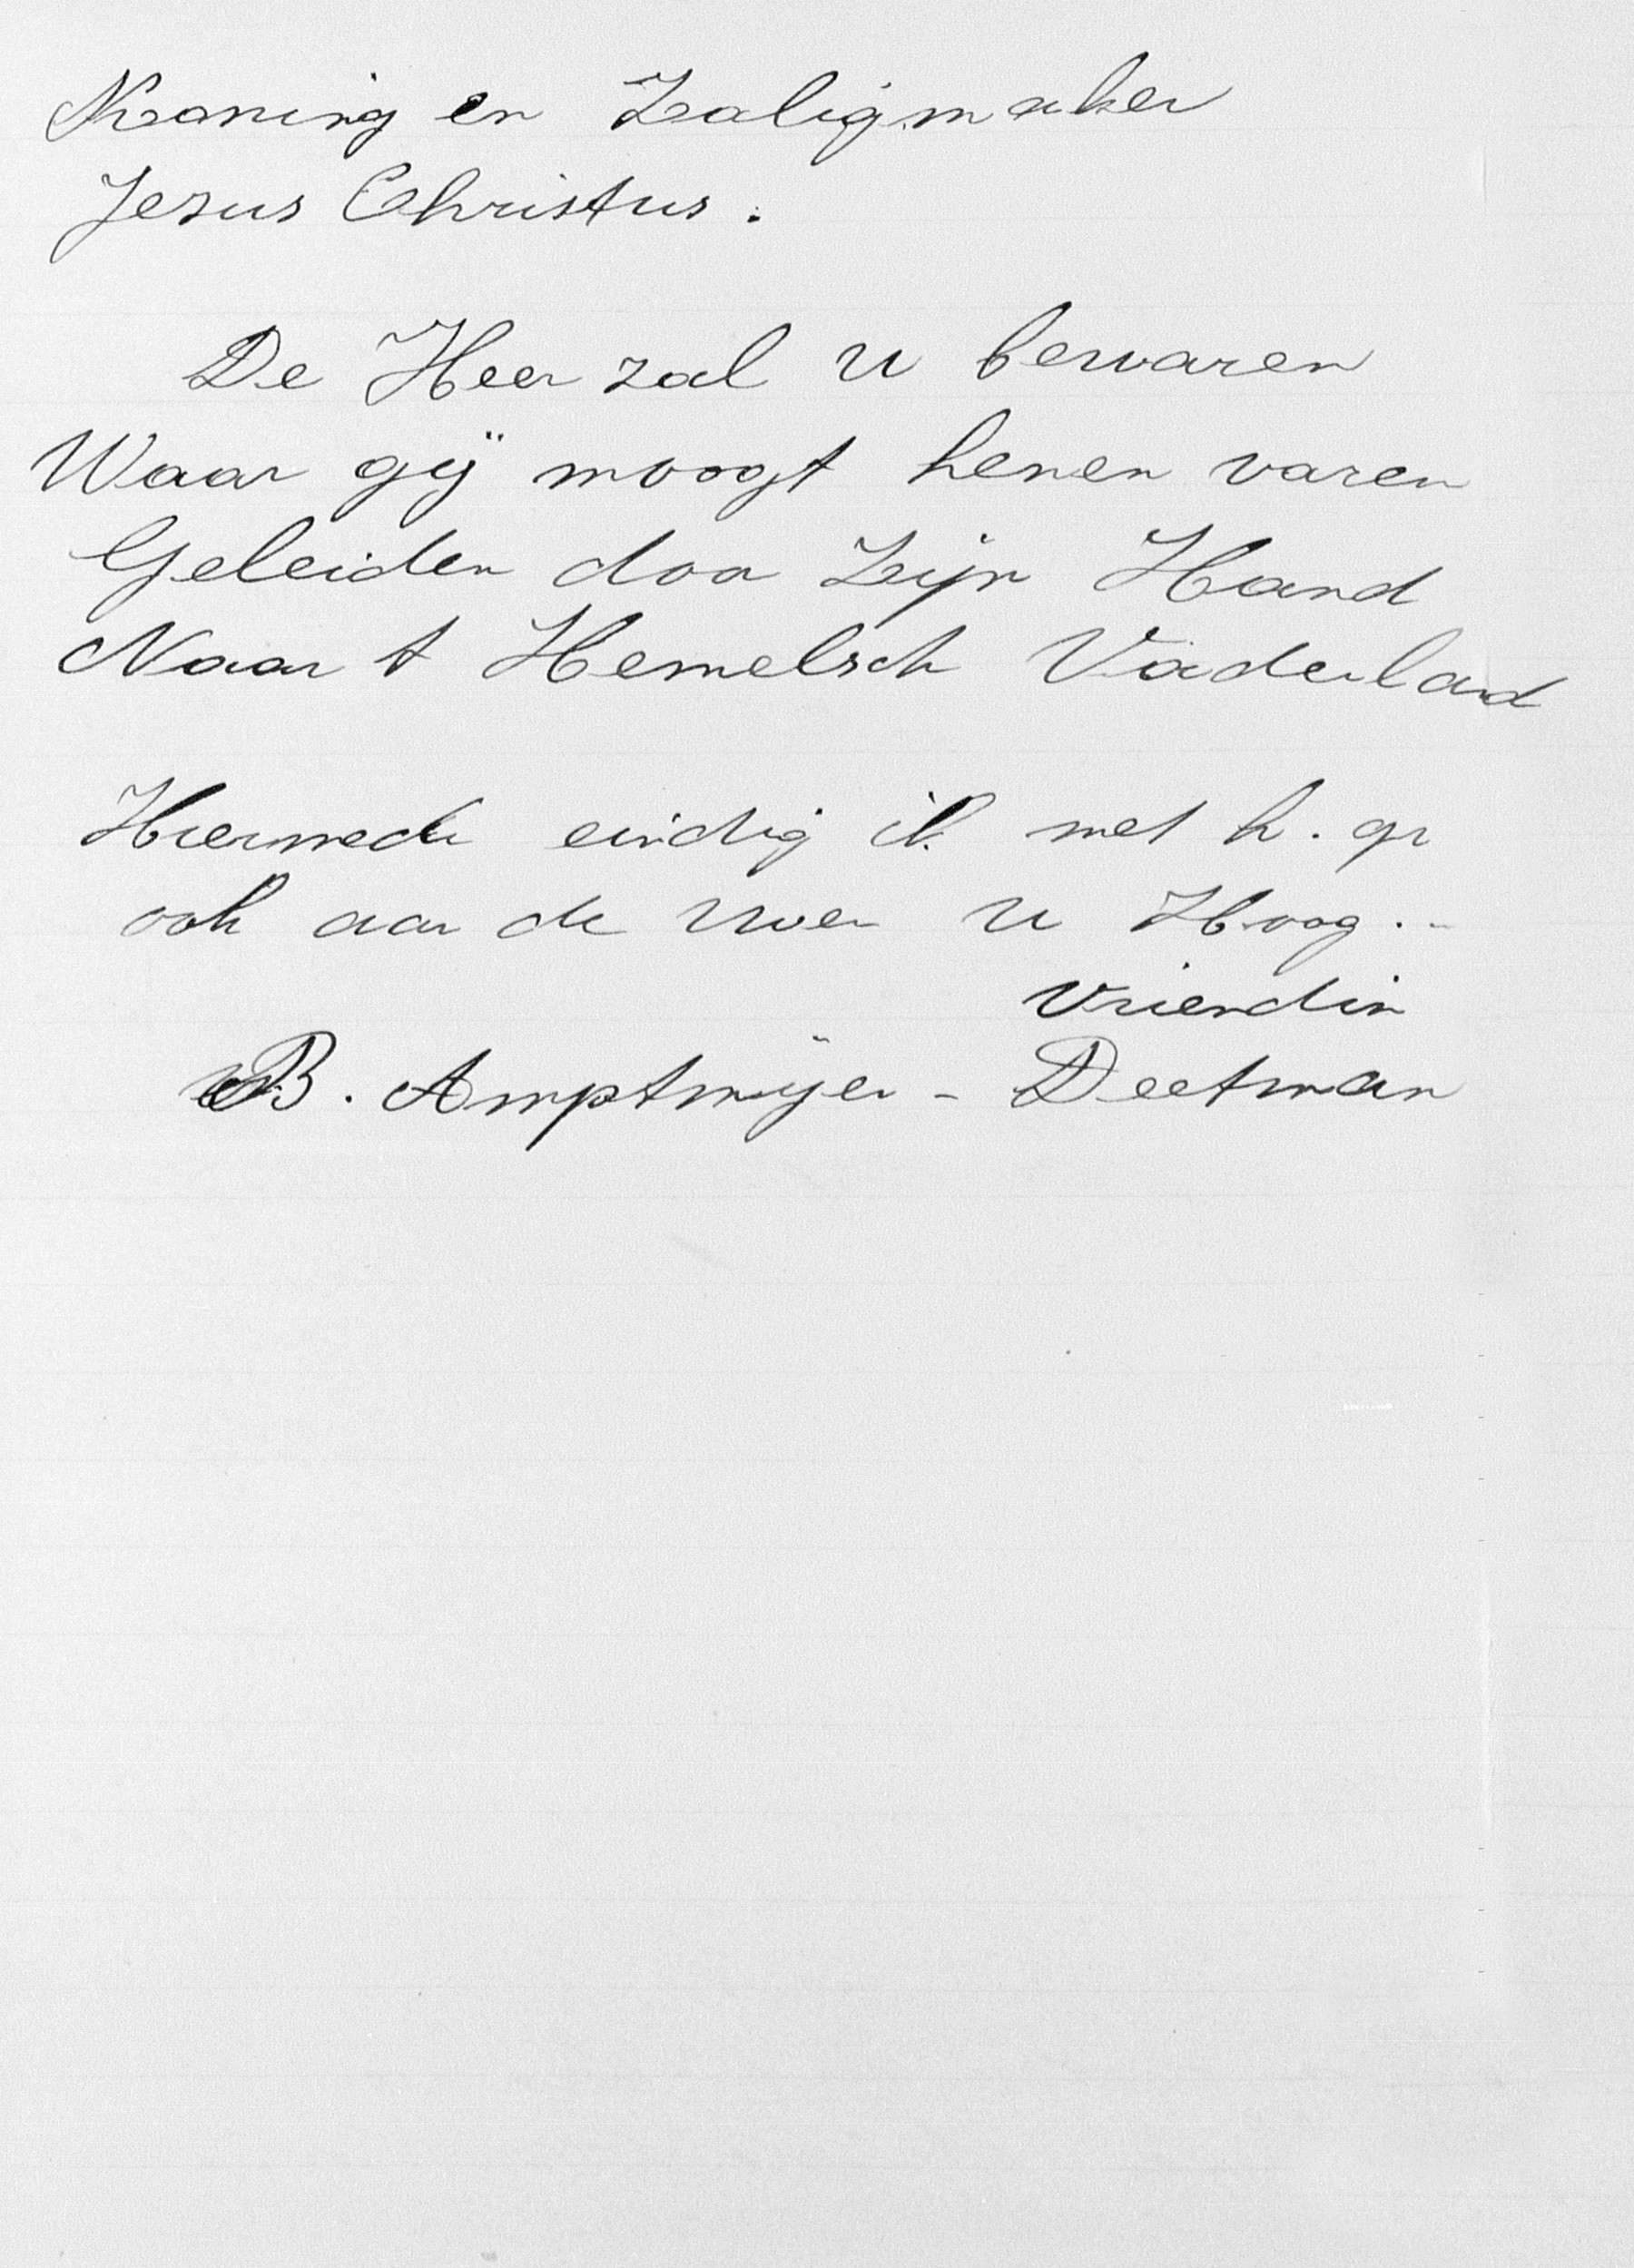 Koning en Zaligmaker
Jezus Christus.
De Heer zal u bewaren
Waar gij moogt henen varen
Geleiden door Zijn Hand
Naar t Hemelsch Vaderland
Hiermede eindig ik met h. gr
ook aan de uwen u Hoog..
Vriendin
B. Amptmeijer - Deetman